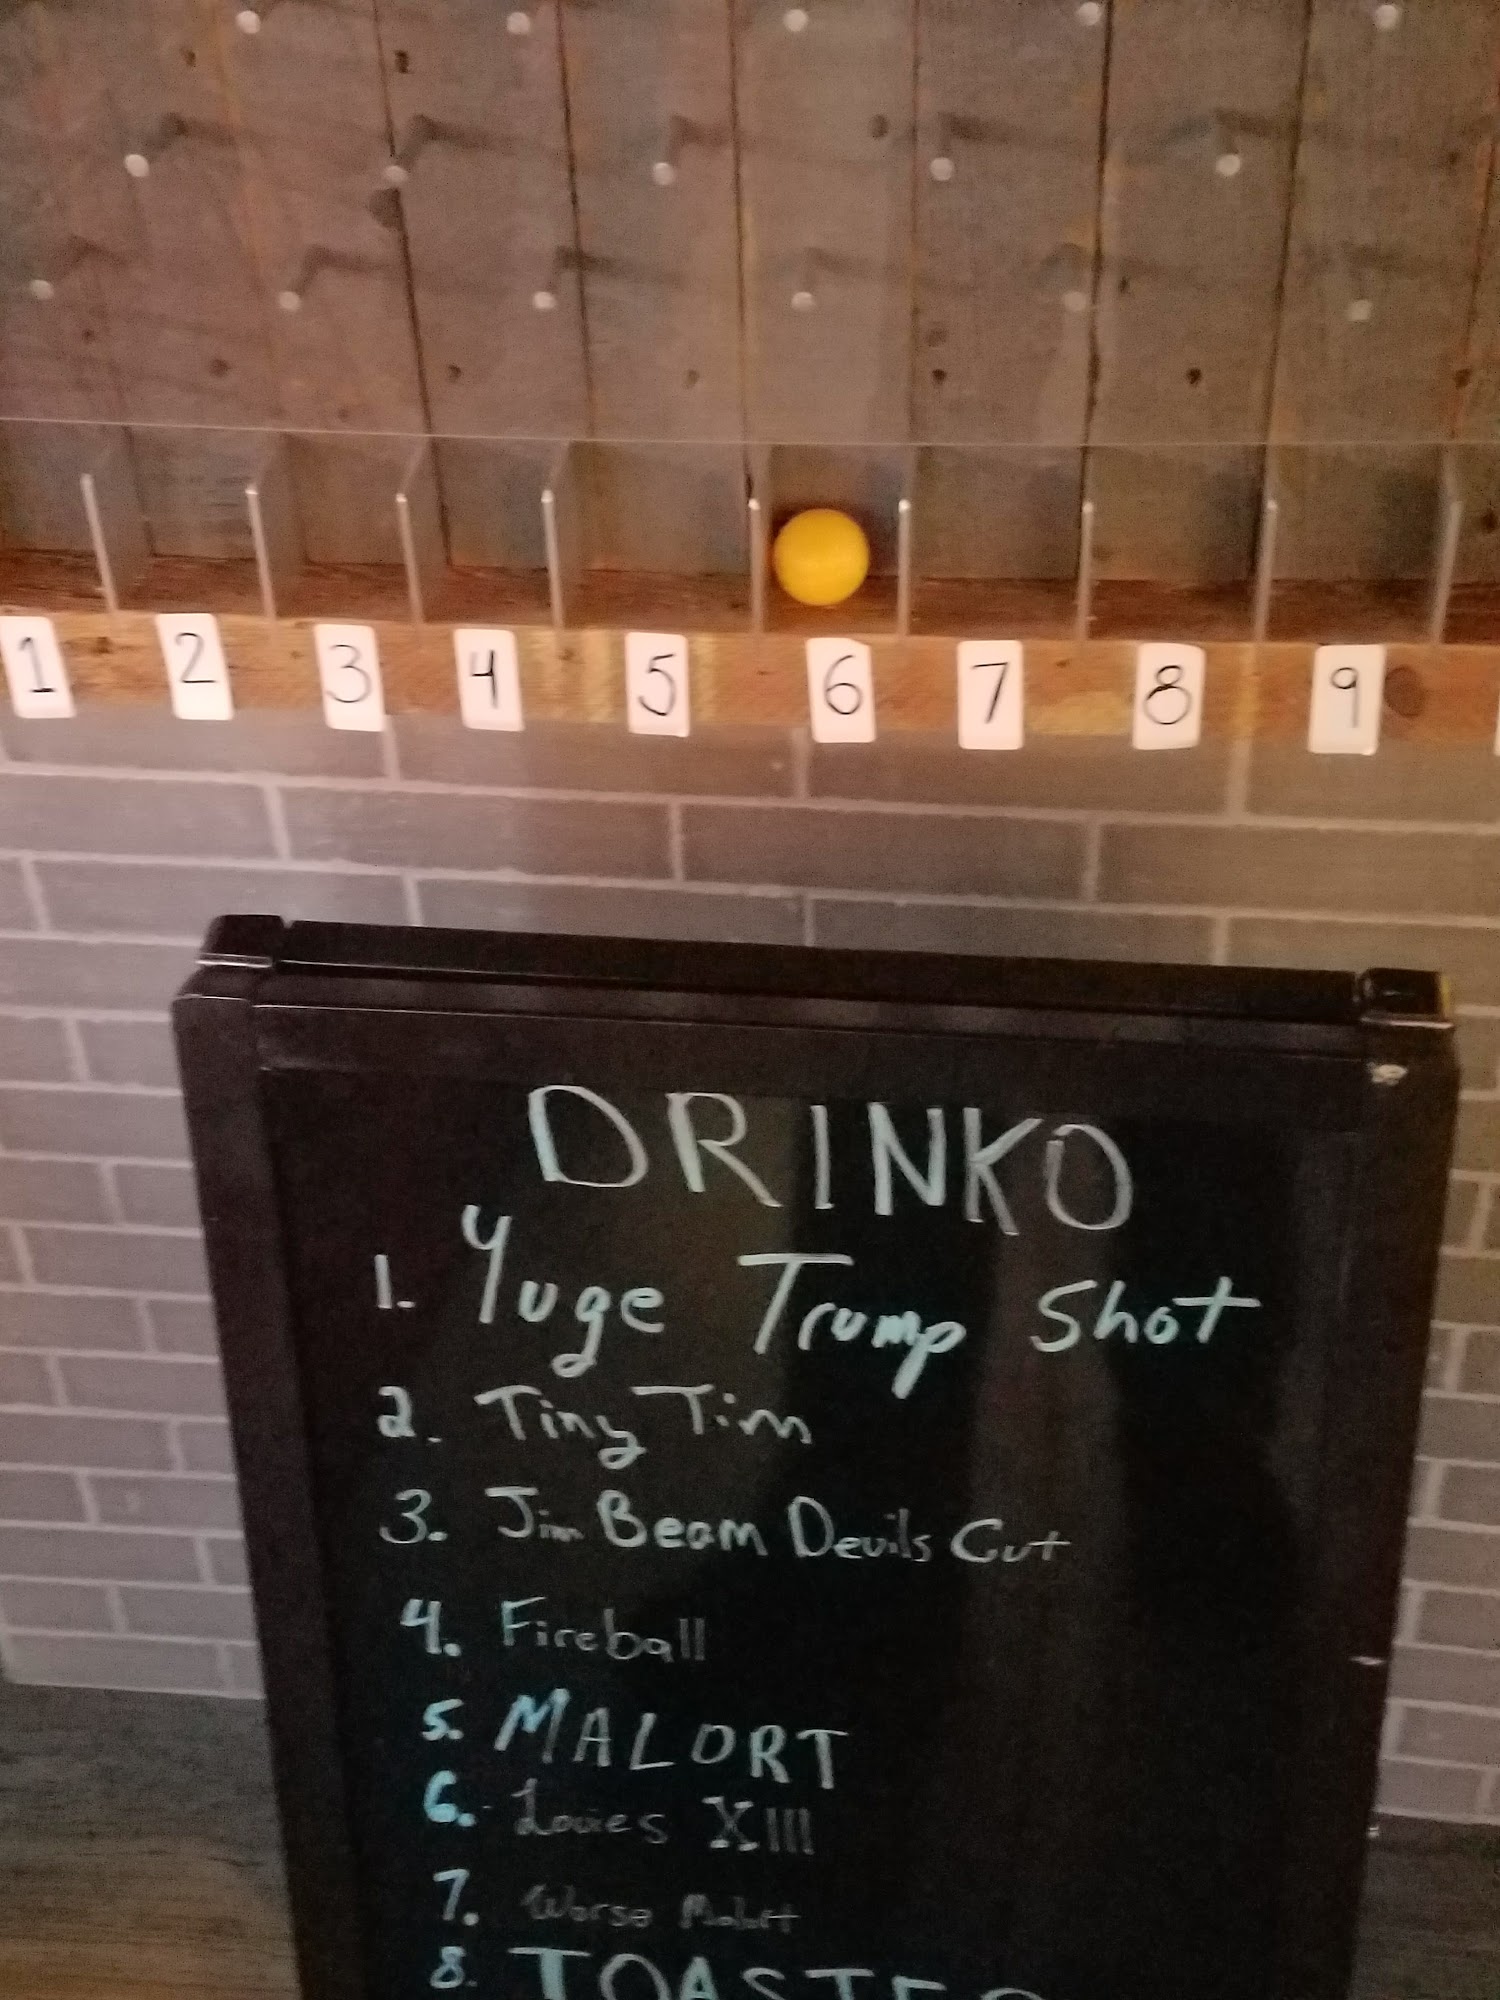 1 2 3 4 5 6 7 8 9
DRINKO
1. Yuge Trump Shot
2. Tiny Tim
3. Jim Beam Devils Cut
4. Fireball
5. MALORT
6. Louies XIII
7. Worse Malort
8. TOASTED